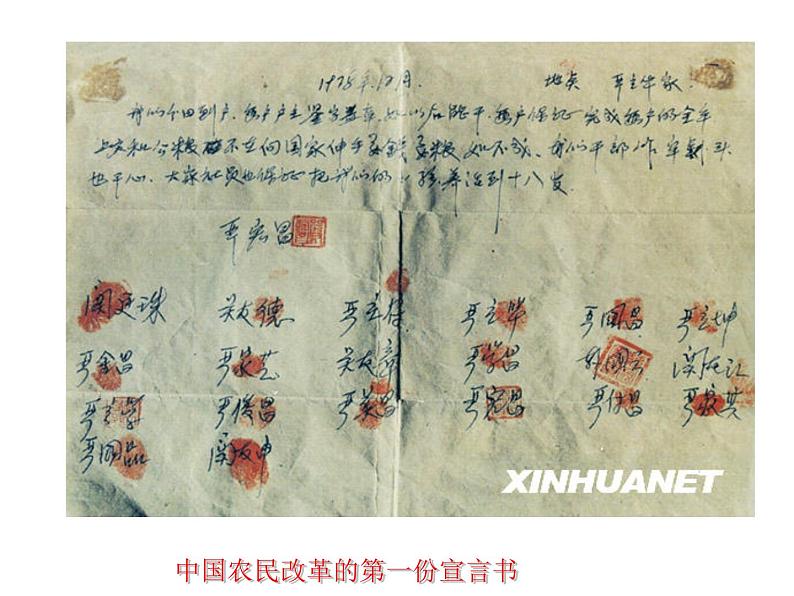 1978年12月. 地点 严立华家
我们分田到户,每户户主签字盖章,如以后能干,每户保证完成每户的全年
上交和公粮 不在向国家伸手要钱要粮 如不成、我们干部作牢刹头
也干心、大家社员也保证把我们的小孩养活到十八岁.
严宏昌
关廷珠 关友德 严立符 严立华 严国昌 严立坤
严金昌 严家芝 关友章 严学昌 韩国云 关友江
严立学 严俊昌 严美昌 严宏昌 严付昌 严家其
严国品 关友申
XINHUANET
中国农民改革的第一份宣言书